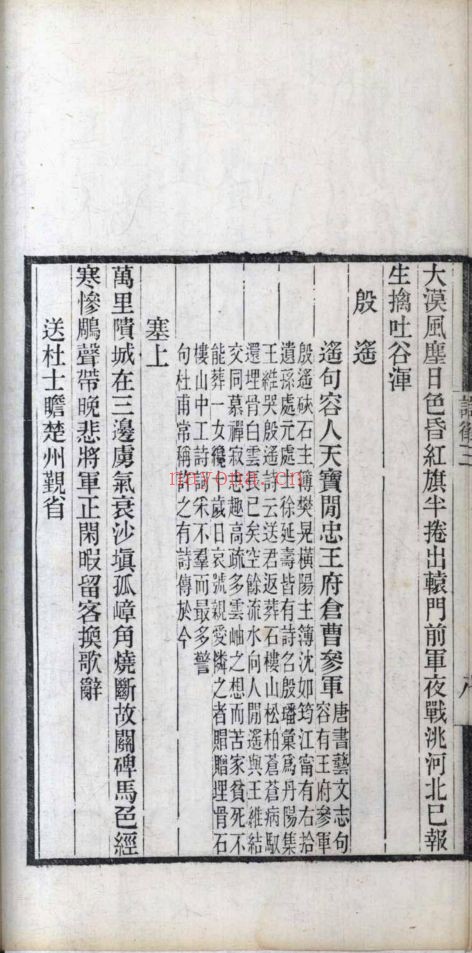 大漠風塵日色昏紅旗半捲出轅門前軍夜戰洮河北已報
生擒吐谷渾
殷遙
遙句容人天寶閒忠王府倉曹參軍
唐書藝文志句
容有王府參軍
殷遙硤石主簿樊晃橫陽主簿沈如筠江甯有右拾
遺孫處元處士徐延壽皆有詩名殷璠彙爲丹陽集
王維哭殷遙詩云送君返葬石樓山松柏蒼蒼賓馭
還埋骨白雲長已矣空餘流水向人閒遙與王維結
交同慕禪寂志趣高疏多雲岫之想而苦家貧死不
能葬一女纔十歲日哀號親愛憐之者賵贈埋骨石
樓山中工詩詞采不羣而最多警
句杜甫常稱許之有詩傳於今
塞上
萬里隤城在三邊虜氣衰沙塡孤嶂角燒斷故關碑馬色經
寒慘鵰聲帶晚悲將軍正閑暇留客換歌辭
送杜士瞻楚州覲省